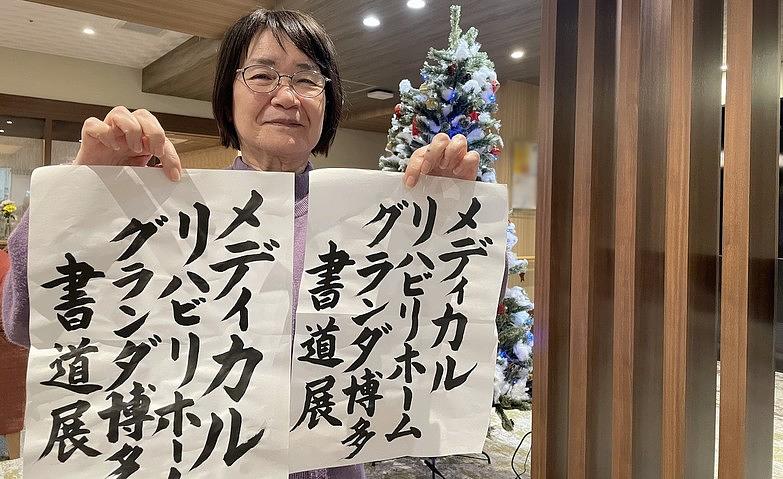 メディカル
リハビリホーム
グランダ博多
書道展
メディカル
リハビリホー
グランダ博多
書道展